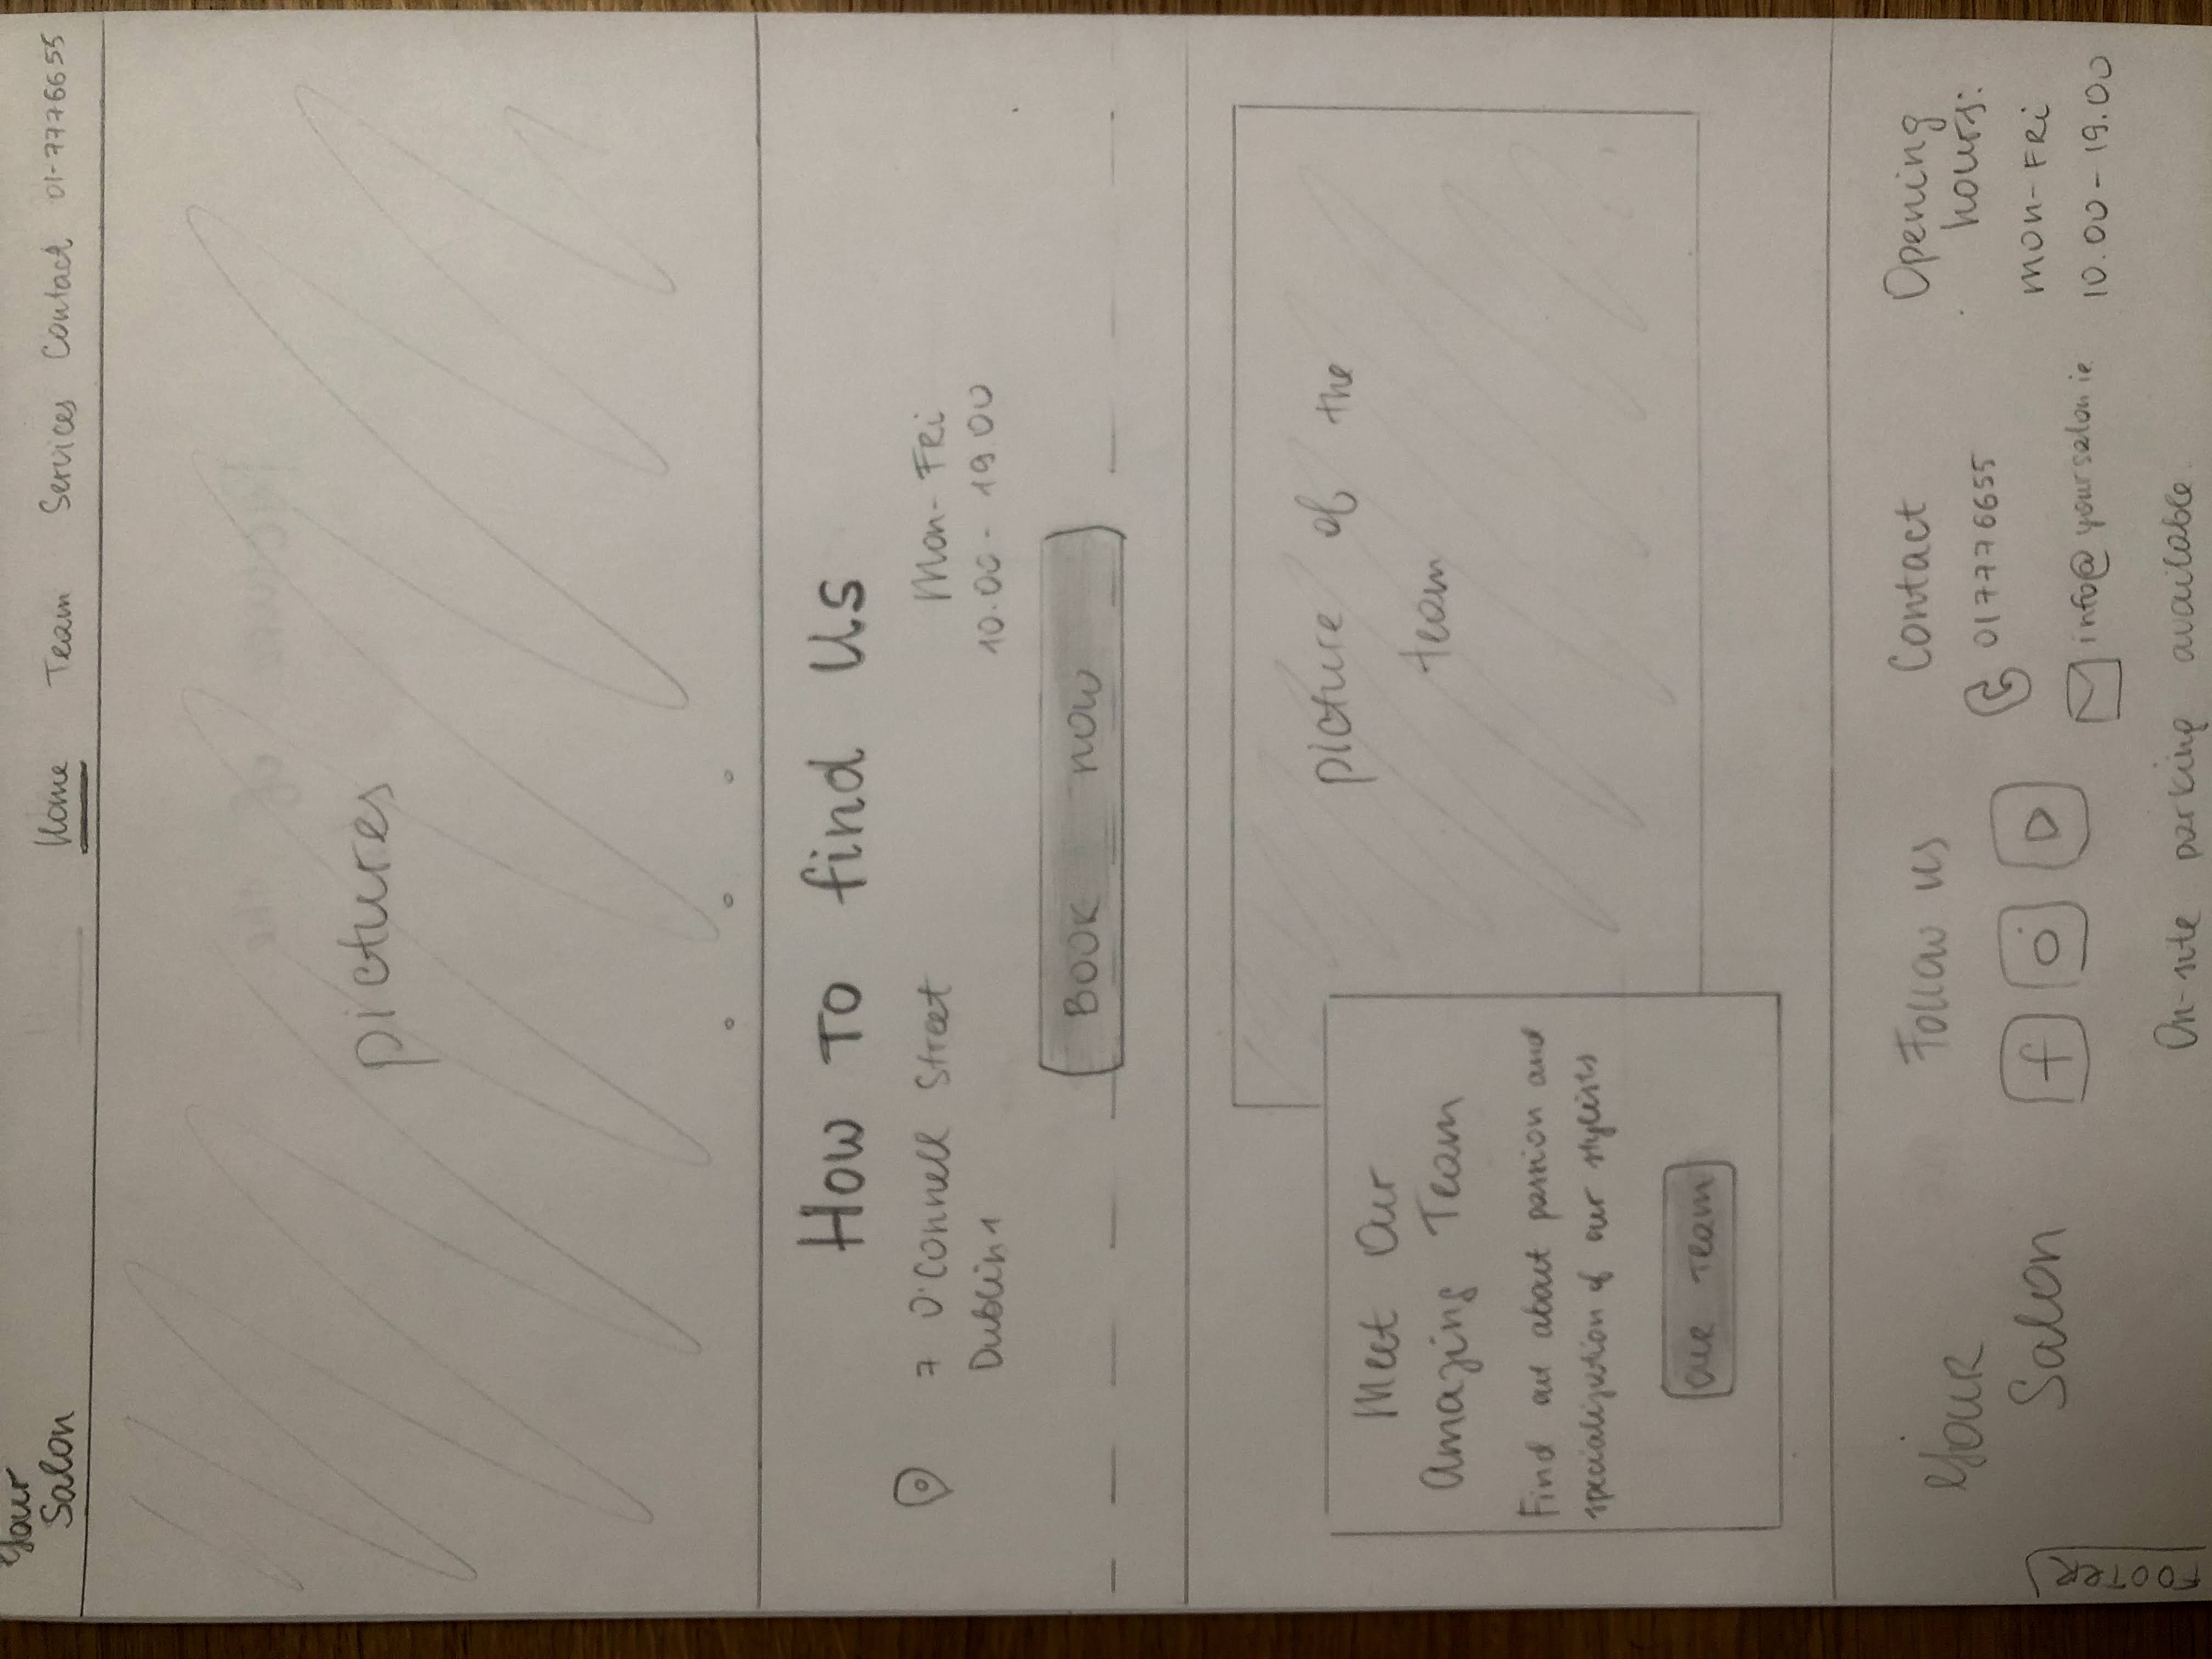 Your
Salon
Home Team Services Contact 01-7776655
pictures
How To find Us
7 O'Connell Street
Dublin 1
Mon-Fri
10.00 - 19.00
BOOK NOW
picture of the
team
Meet Our
Amazing Team
Find out about passion and
specialization of our stylists
OUR TEAM
Your
Salon
Follow us
f
Contact
017776655
info@yoursalon.ie
Opening
hours:
Mon-Fri
10.00 - 19.00
On-site parking available
FOOTER